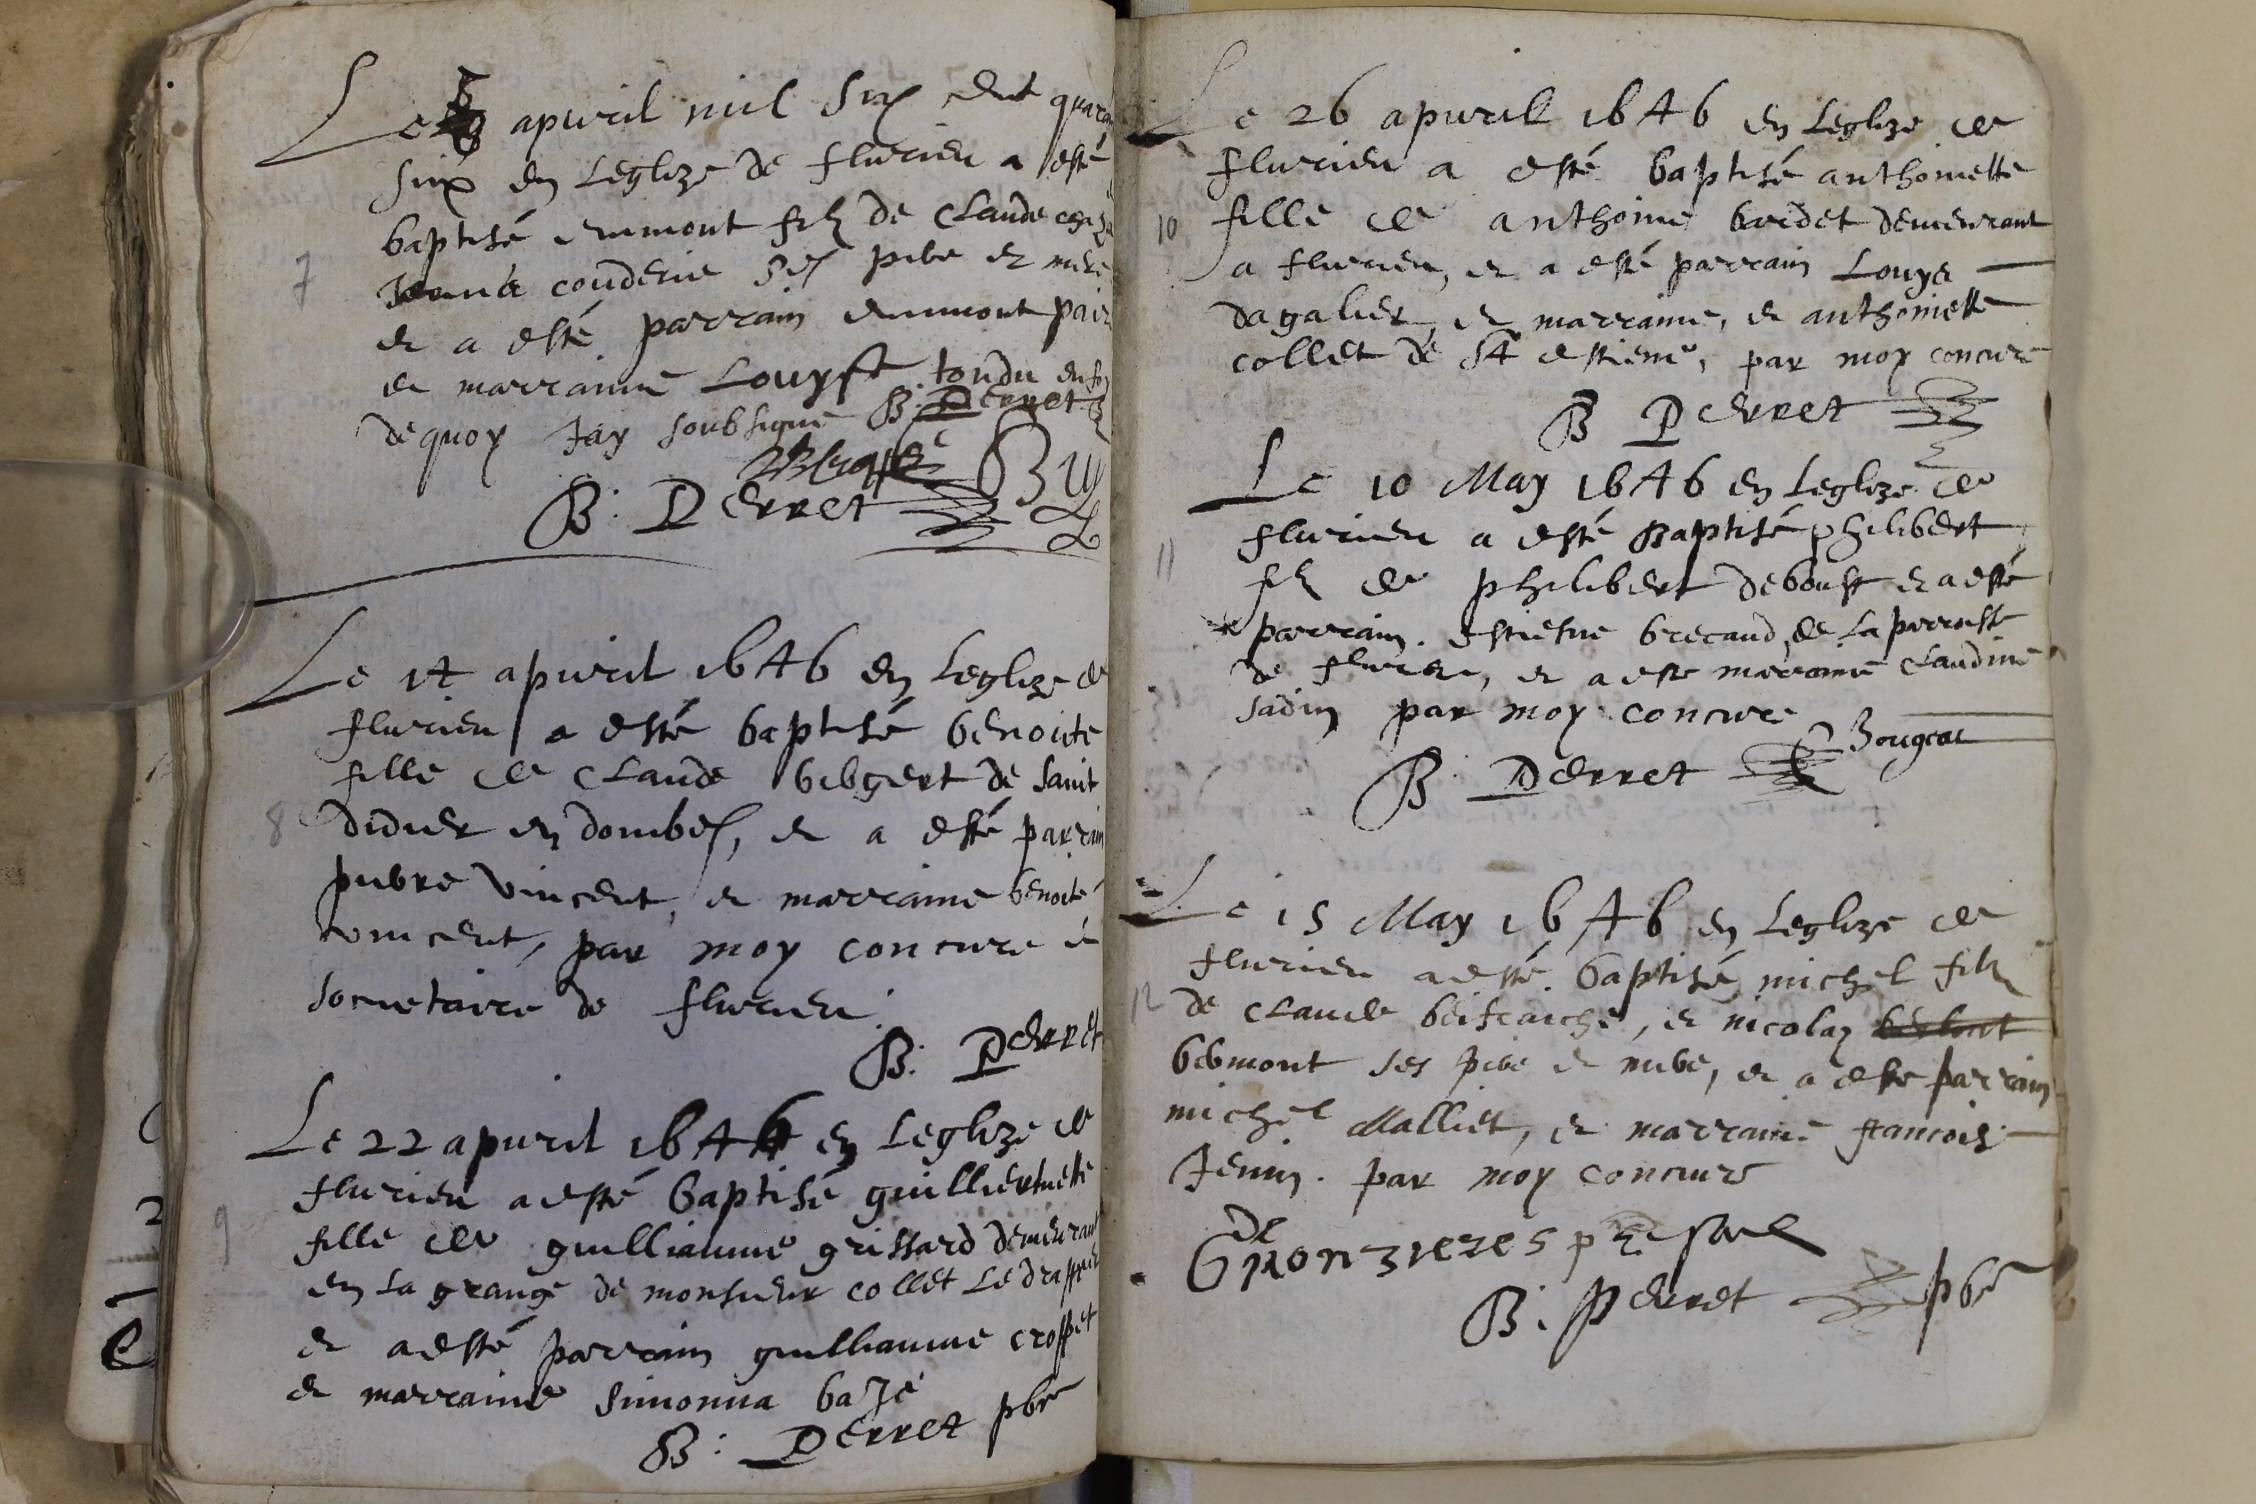 Le 8 apvril mil six cent quara
six en Leglize de flurieu a esté
baptisé eumont filz de Claude
couderie ses pere et mere
et a esté parrain eumont
et marrainne Louyse tondu en foy
de quoy Jay soubsigné B: Perret
B: Perret
7
Le 14 apvril 1646 en Leglize de
flurieu a esté baptisé benoite
fille de Claude de saint
8
didier en dombes, et a esté parrain
pierre vincent, et marraine benoite
vincent, par moy concure et
societaire de flurieu
B: Perret
Le 22 apvril 1646 en Leglize de
flurieu a esté baptisé guilliermette
9
fille de guilliaume grissard demeurant
en la grange de monsieur collet Le drappier
et a esté parrain guilliaume croppet
et marraine simonna
B: Perret pbre
Le 26 apvril 1646 en Leglize de
flurieu a esté baptisé anthoinette
10
fille de anthoine bardet demeurant
a flurieu, et a esté parrain Louys
dagalier, et marrainne, et anthoinette
collet de St estiene, par moy concure
B Perret
Le 10 May 1646 en Leglize de
flurieu a esté Baptisé philibert
11
filz de philibert deboust et a esté
parrain estiesne brecaud de La parroisse
de flurieu, et a esté marraine Claudine
sadin par moy concure
Bougeat
B: Perret
Le 15 May 1646 en Leglize de
flurieu a esté baptisé michel filz
12
de Claude beifraiche, et nicolaz
bermont ses pere et mere, et a esté parrain
michel Malliet, et marraine francoise
Jenin. par moy concure
De Gronzieres
B: Perret pbre